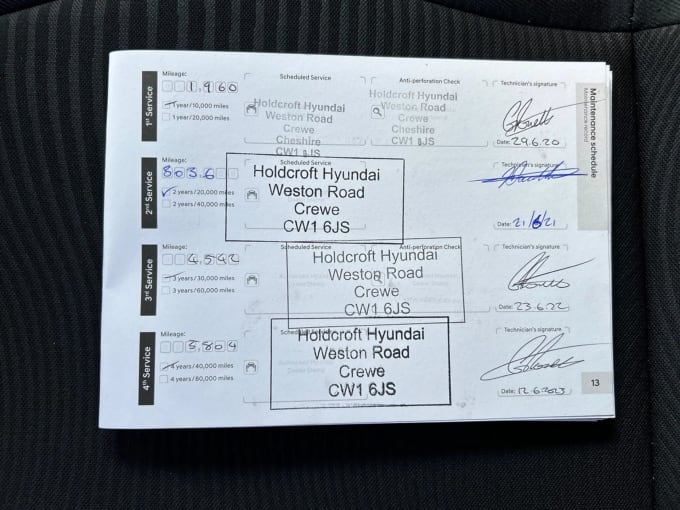 Maintenance schedule
Maintenance record
1st Service
Mileage:
1,960
1 year/10,000 miles
1 year/20,000 miles
Scheduled Service
Holdcroft Hyundai
Weston Road
Crewe
Cheshire
CW1 6JS
Anti-perforation Check
Holdcroft Hyundai
Weston Road
Crewe
Cheshire
CW1 6JS
Technician's signature
Date: 29.6.20
2nd Service
Mileage:
8036
2 years/20,000 miles
2 years/40,000 miles
Scheduled Service
Holdcroft Hyundai
Weston Road
Crewe
CW1 6JS
Technician's signature
Date: 21/6/21
3rd Service
Mileage:
4,542
3 years/30,000 miles
3 years/60,000 miles
Scheduled Service
Anti-perforation Check
Holdcroft Hyundai
Weston Road
Crewe
CW1 6JS
Technician's signature
Date: 23.6.22
4th Service
Mileage:
5,804
4 years/40,000 miles
4 years/80,000 miles
Holdcroft Hyundai
Weston Road
Crewe
CW1 6JS
Technician's signature
Date: 12.6.2023
13